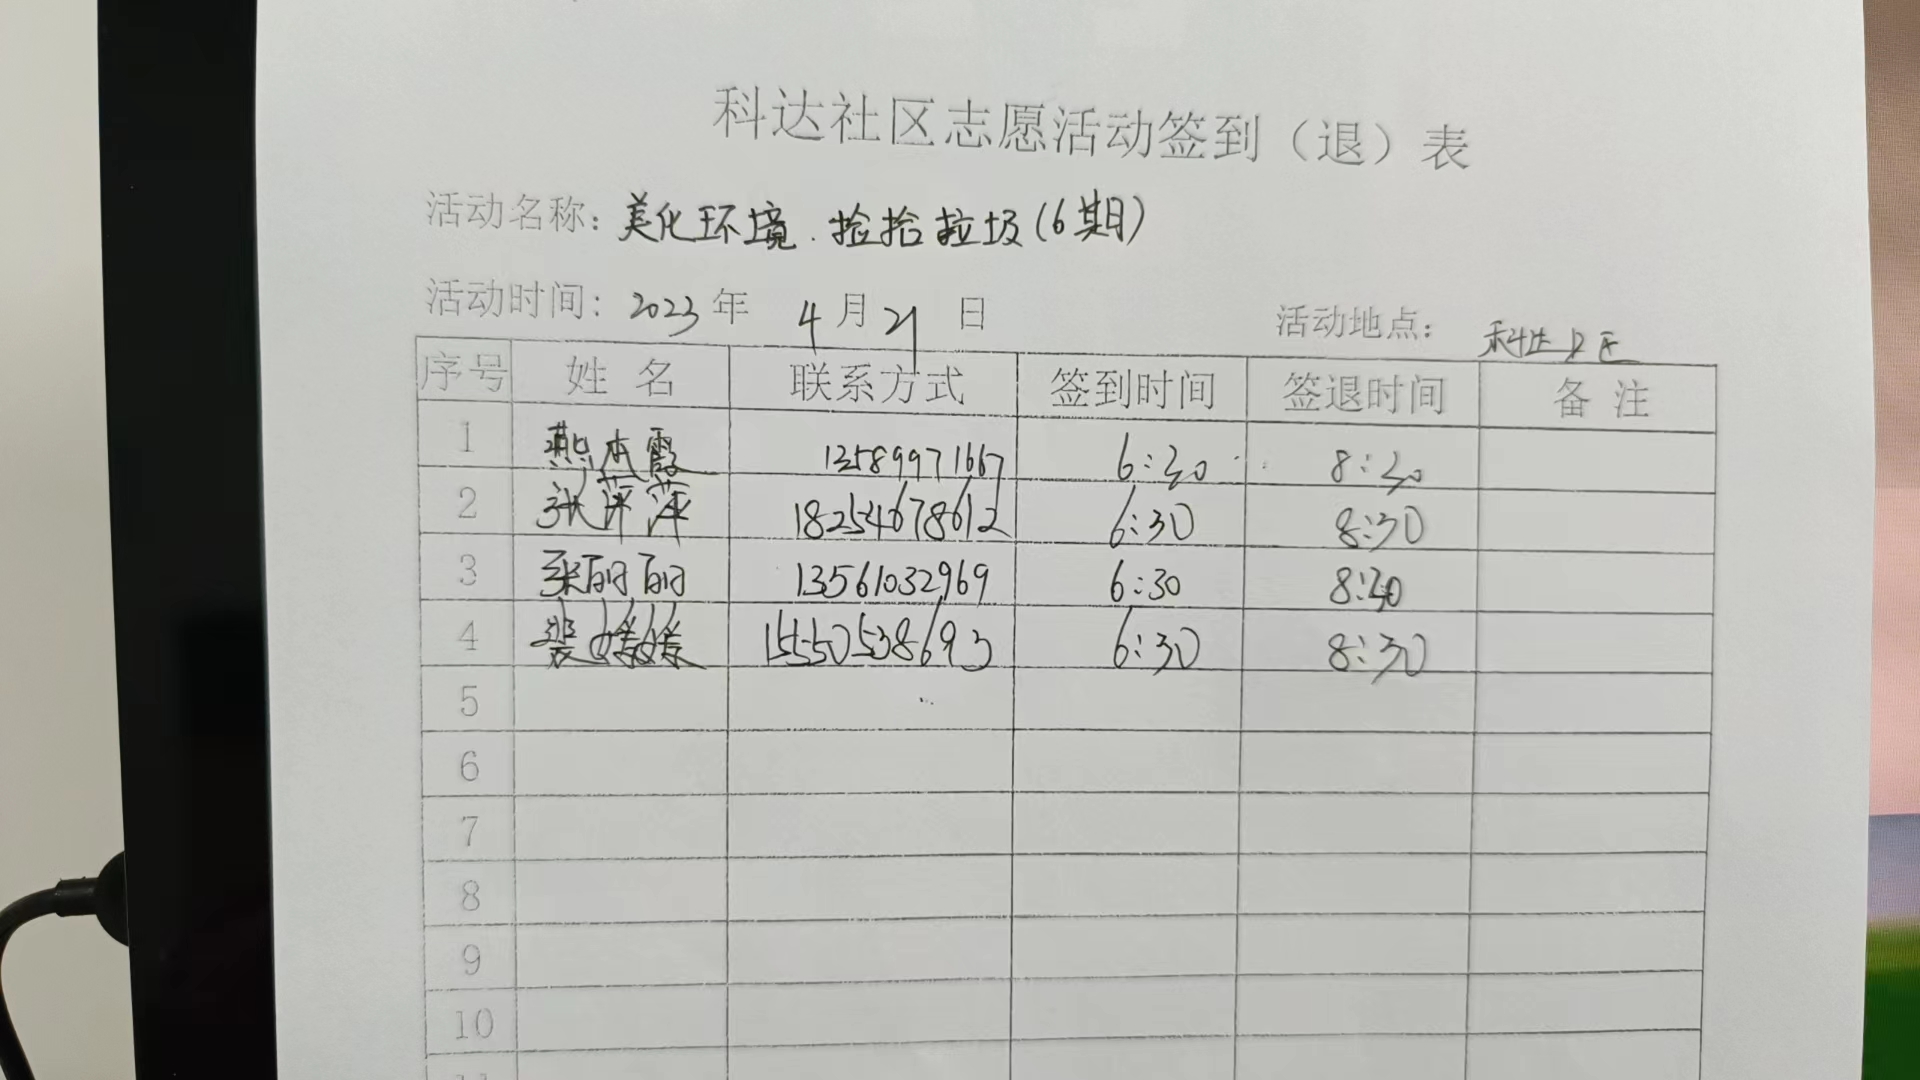 科达社区志愿活动签到（退）表
活动名称：美化环境.捡拾垃圾(6期)
活动时间：2023年 4月21日 活动地点：科达
序号 姓名 联系方式 签到时间 签退时间 备注
1 燕本霞 13589971667 6:30 8:30
2 张萍萍 18254678612 6:30 8:30
3 丽丽 13561032969 6:30 8:30
4 裴媛媛 15550538693 6:30 8:30
5
6
7
8
9
10
11